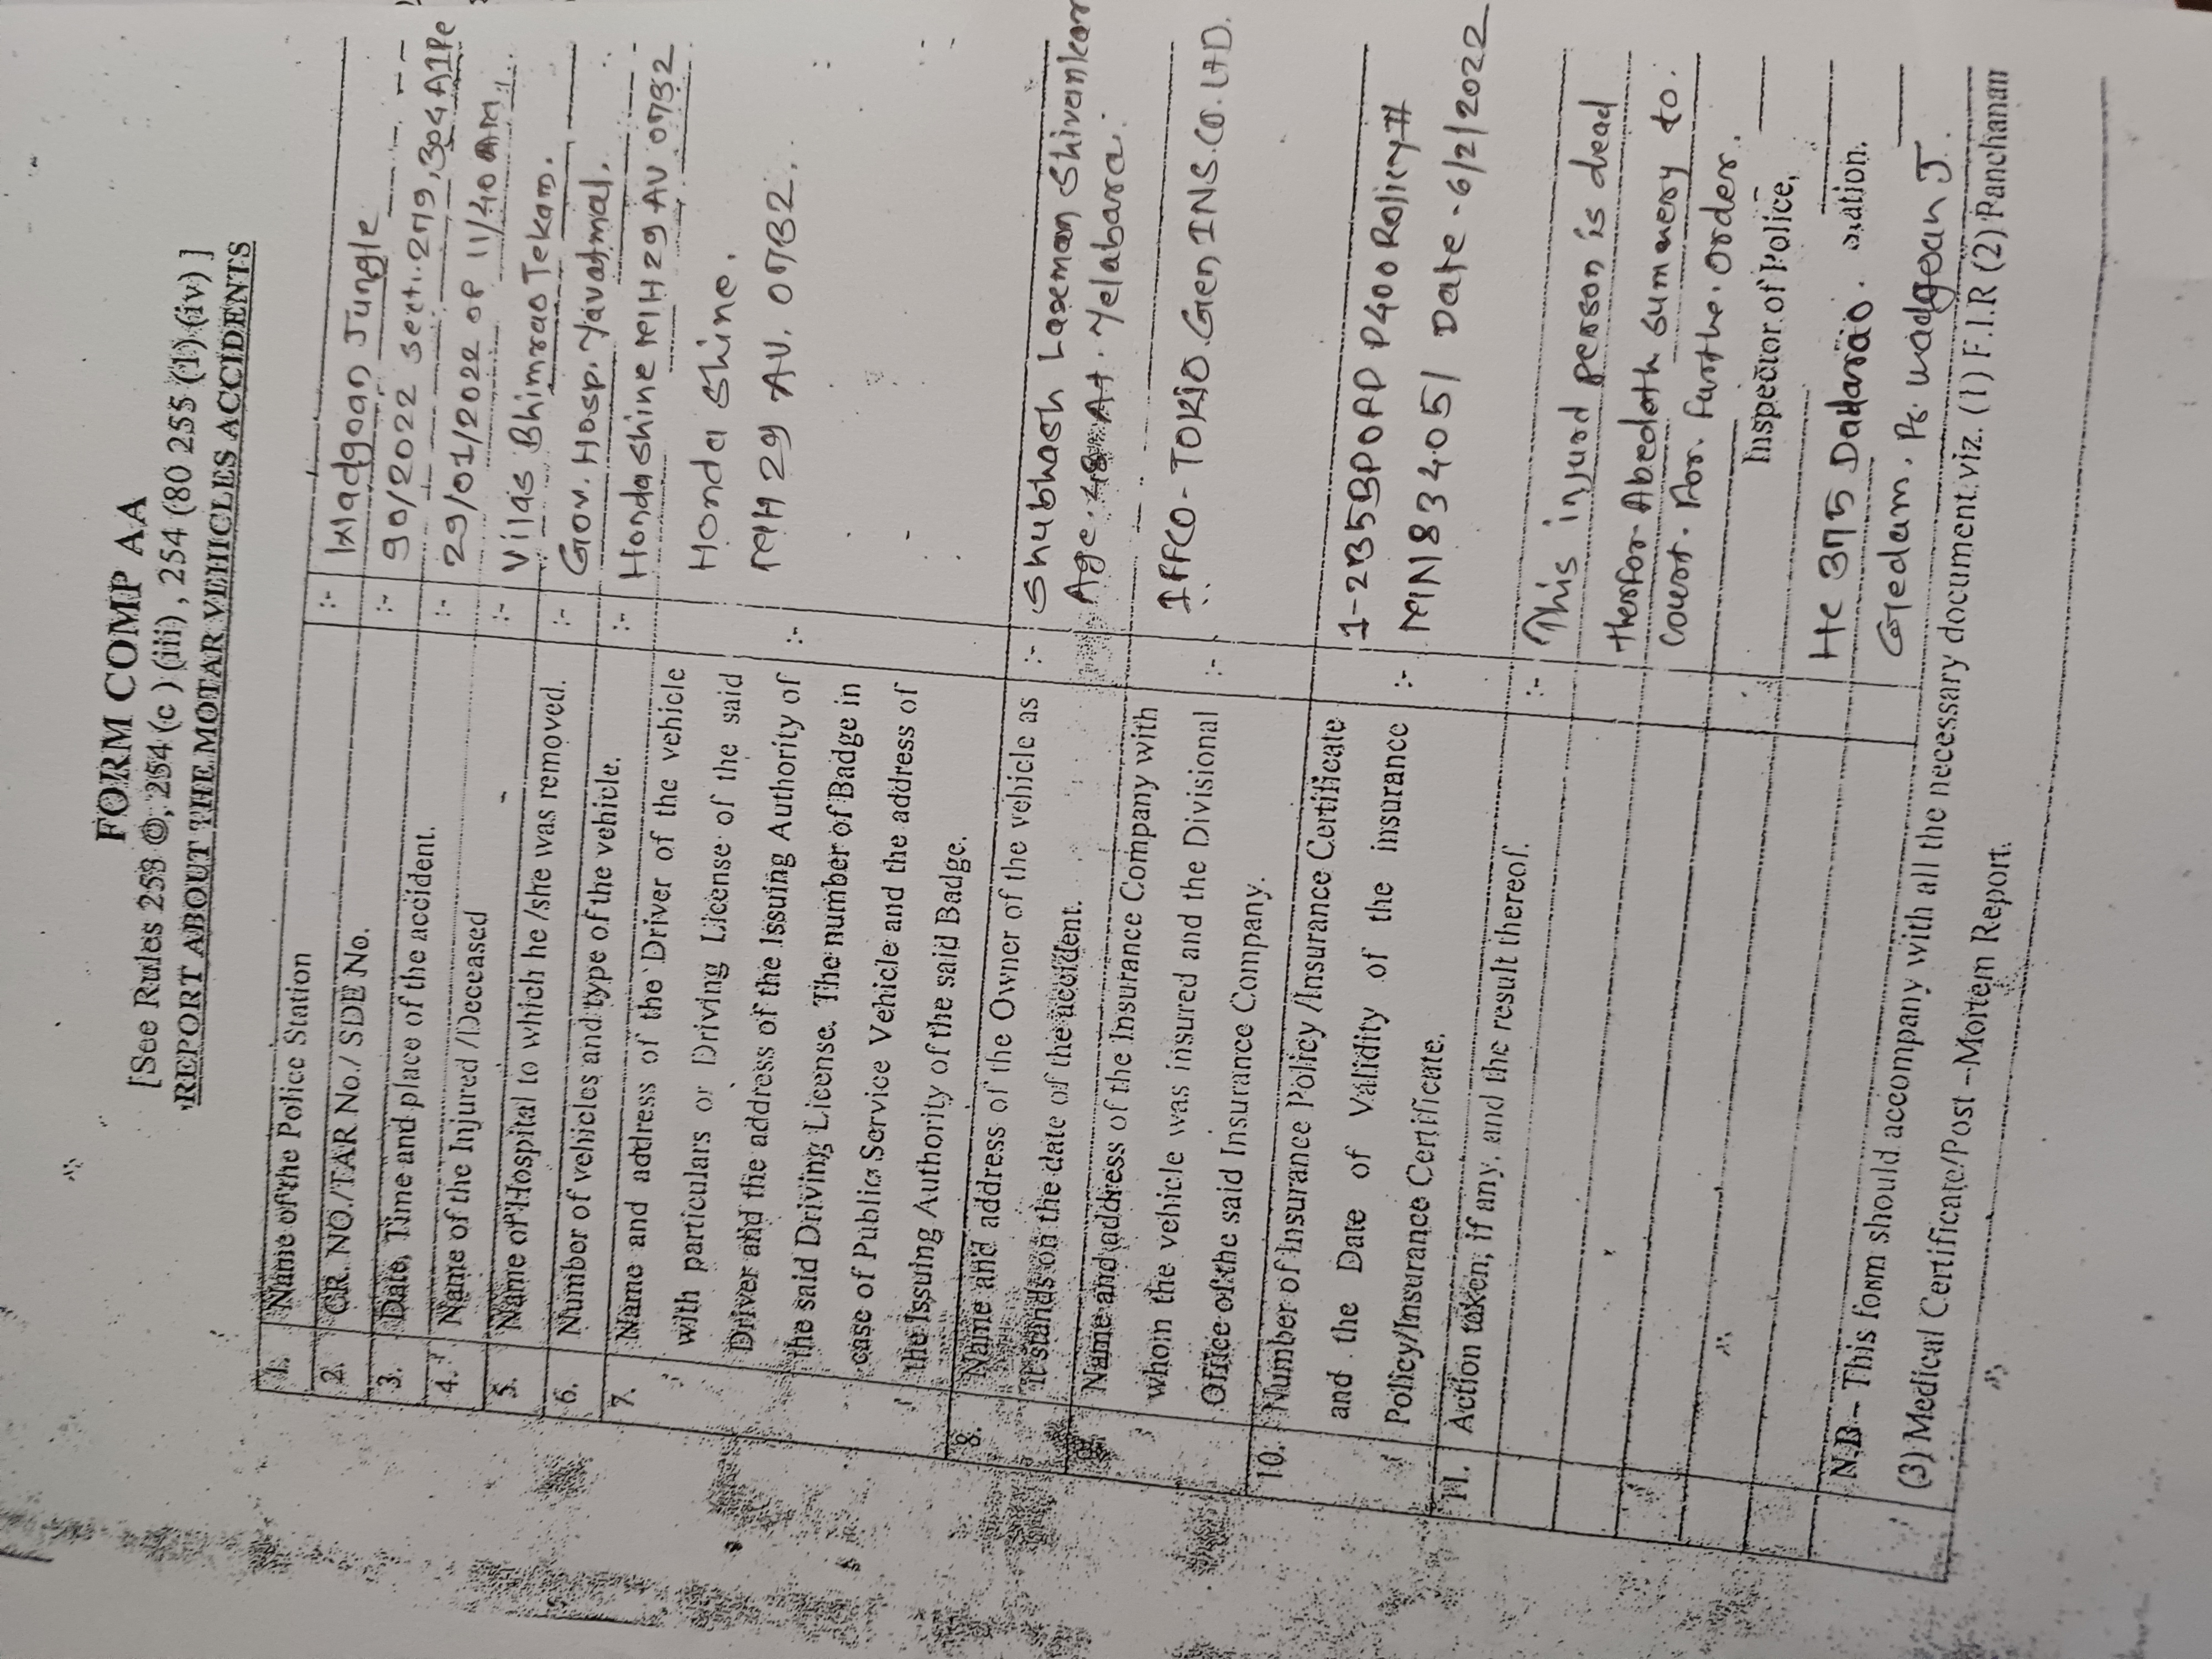 FORM COMP AA
[See Rules 253 ©, 254 (c ) (iii) , 254 (80 255 (1) (iv) ]
REPORT ABOUT THE MOTAR VEHICLES ACCIDENTS
1. Name of the Police Station :- Wadgoan Jungle
2. CR. NO./TAR No./ SDE No. :- 90/2022 sect. 279, 304 A IPC
3. Date, Time and place of the accident. :- 29/01/2022 of 11/40 AM
4. Name of the Injured /Deceased :- Vilas Bhimrao Tekam.
5. Name of Hospital to which he /she was removed. :- Gov. Hosp. Yavatmal.
6. Number of vehicles and type of the vehicle. :- Honda Shine MH 29 AV 0732
7. Name and address of the Driver of the vehicle
with particulars or Driving License of the said
Driver and the address of the Issuing Authority of
the said Driving License. The number of Badge in
case of Public Service Vehicle and the address of
the Issuing Authority of the said Badge.
:- Honda Shine.
MH 29 AV. 0732.
8. Name and address of the Owner of the vehicle as
it stands on the date of the accident.
:- Shubhash Laxeman Shivankar
Age. 48 At. Yelabara.
9. Name and address of the Insurance Company with
whom the vehicle was insured and the Divisional
Office of the said Insurance Company.
:- IFFCO-TOKIO. Gen INS. CO. LTD.
10. Number of Insurance Policy /Insurance Certificate
and the Date of Validity of the insurance
Policy/Insurance Certificate.
:- P400 Policy #
Date - 6/2/2022
11. Action taken, if any, and the result thereof.
:- This injurd person is dead
therfor sumery to.
court. For. Furthe. order.
Inspector of Police,
Hc 375
Gedam. Ps. wadgoan J.
N.B – This form should accompany with all the necessary document viz. (1) F.I.R (2) Panchanan
(3) Medical Certificate/Post –Mortem Report.